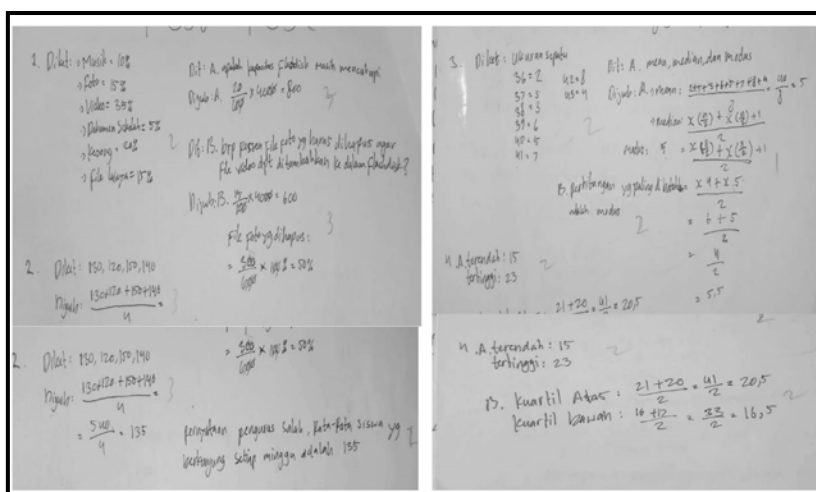 1. Diket: → Musik = 10%
→ Foto = 15%
→ Video = 35%
→ Dokumen Sekolah = 5%
→ Kosong = 20%
→ File lainnya = 15%
Dit: A. apakah kapasitas flashdisk masih mencukupi
Dijwb: A. 20/100 × 4000 = 800
Dit: B. brp persen file foto yg harus dihapus agar
file video dpt ditambahkan ke dalam flashdisk?
Dijwb: B. 15/100 × 4000 = 600
file foto yg dihapus:
= 300/600 × 100% = 50%
2. Diket: 130, 120, 150, 140
Dijwb: 130+120+150+140/4 =
2. Diket: 130, 120, 150, 140
Dijwb: 130+120+150+140/4 =
= 540/4 = 135
= 300/600 × 100% = 50%
pernyataan pengurus salah, Rata-Rata siswa yg
berkunjung setiap minggu adalah 135
3. Diket: Ukuran sepatu
36 = 2 42 = 8
37 = 5 43 = 4
38 = 3
39 = 6
40 = 5
41 = 7
Dit: A. mean, median, dan modus
Dijwb: A. → mean: = 40/8 = 5
→ median:
modus: 5
B. perhitungan yg paling dibutuhkan
adalah modus
x4 + x5/2
= 6+5/2
= 5,5
4. A. terendah: 15
tertinggi: 23
21+20 = 41/2 = 20,5
4. A. terendah: 15
tertinggi: 23
B. Kuartil Atas: 21+20/2 = 41/2 = 20,5
Kuartil bawah: = 33/2 = 16,5